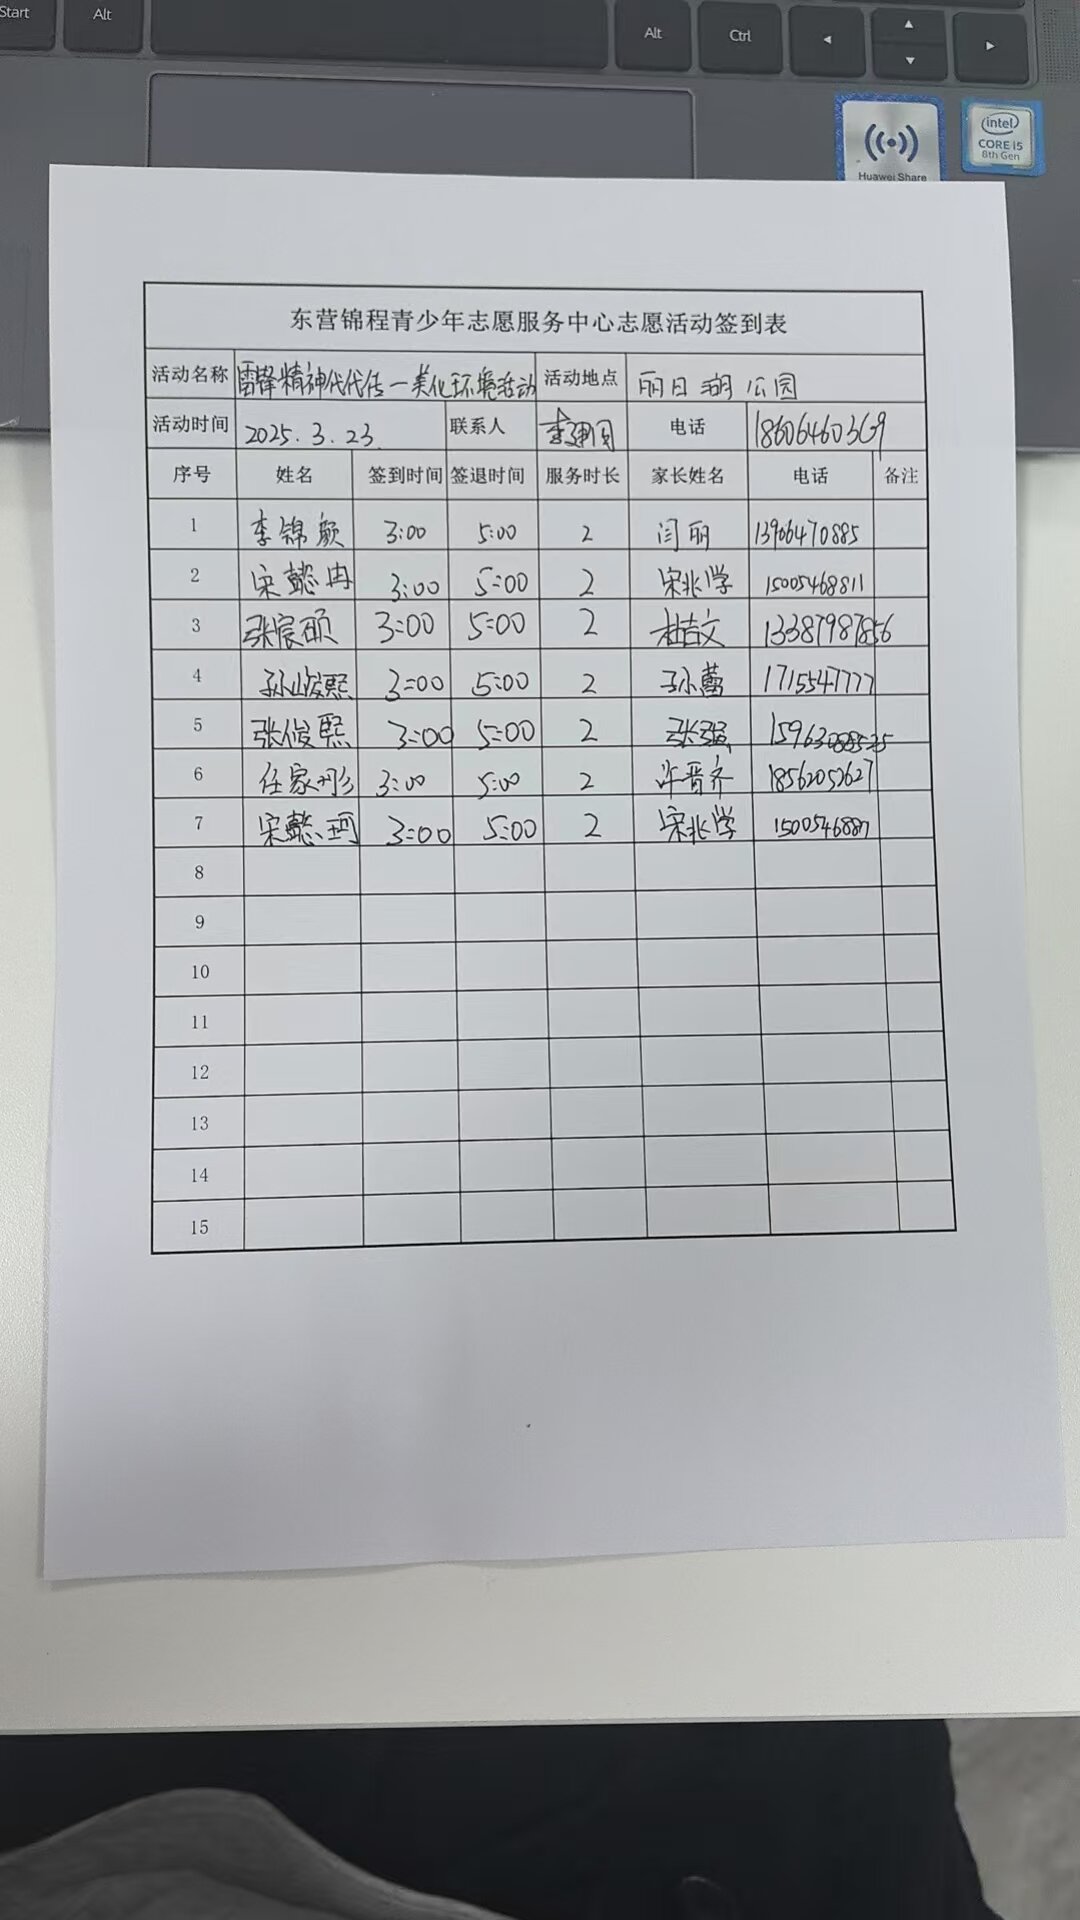 Start Alt Alt Ctrl
Huawei Share
intel
CORE i5
8th Gen
东营锦程青少年志愿服务中心志愿活动签到表
活动名称 雷锋精神代代传一美化环境活动 活动地点 丽日湖公园
活动时间 2025.3.23. 联系人 电话
序号 姓名 签到时间 签退时间 服务时长 家长姓名 电话 备注
1 李锦颜 3:00 5:00 2 闫丽 13906470885
2 宋懿冉 3:00 5:00 2 宋兆学 15005468811
3 张宸硕 3:00 5:00 2 杜吉文 13387987856
4 孙峻熙 3:00 5:00 2 孙蕾 1715547777
5 张俊熙 3:00 5:00 2 张强
6 任家彤 3:00 5:00 2 许晋齐 18562052627
7 宋懿珂 3:00 5:00 2 宋兆学
8
9
10
11
12
13
14
15